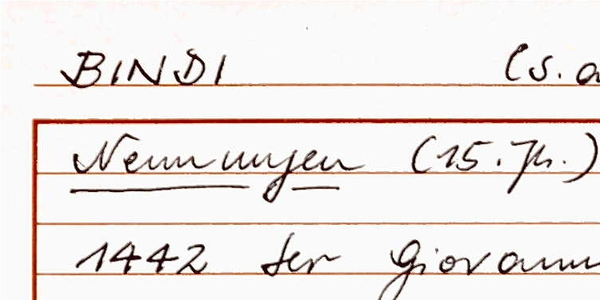 BINDI (s. a
Nennungen (15. Jh.)
1442 Ser Giovann